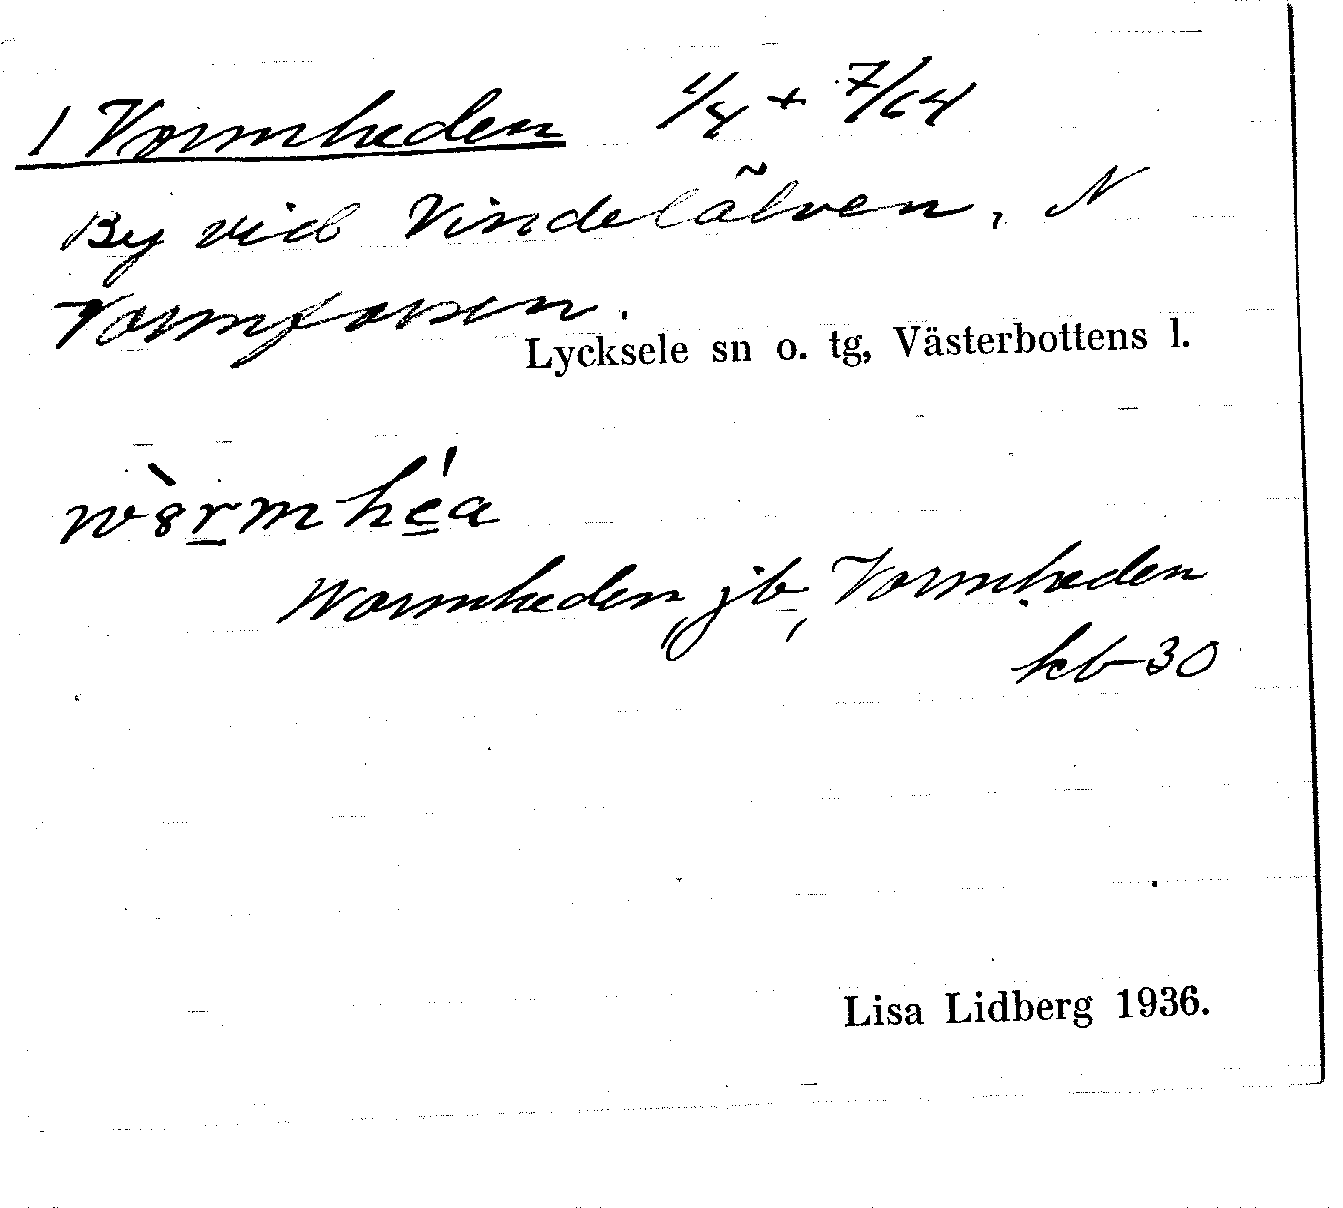 1 Vormheden 1/4 + 7/64
By vid Vindelälven, N
Vormforsen.
Lycksele sn o. tg, Västerbottens l.
Wormheden jb, Vormheden
kb 30
Lisa Lidberg 1936.